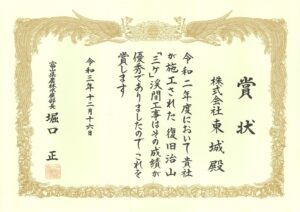 賞状
株式会社東城殿
令和二年度において貴社
が施工された復旧治山
「三ケ」渓間工事はその成績が
優秀でありましたのでこれを
賞します
令和三年十二月十六日
富山県農林水産部長
堀口正